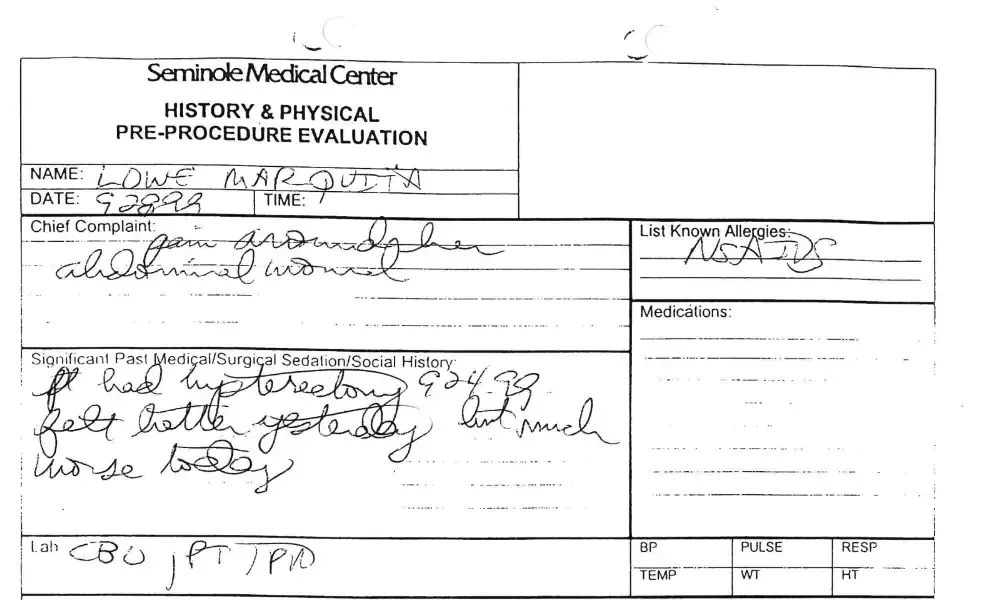 Seminole Medical Center
HISTORY & PHYSICAL
PRE-PROCEDURE EVALUATION
NAME: LOWE MARQUITA
DATE: 92899 TIME:
Chief Complaint:
pain around her
abdominal wound
List Known Allergies:
NSAIDS
Medications:
Significant Past Medical/Surgical Sedation/Social History:
pt had hysterectomy 92499
felt better yesterday but much
worse today
Lab CBC, PT
BP PULSE RESP
TEMP WT HT